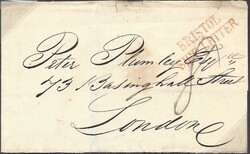 BRISTOL
SHIP LETTER
Peter Plumley Esqr
73 Basinghall Street
London